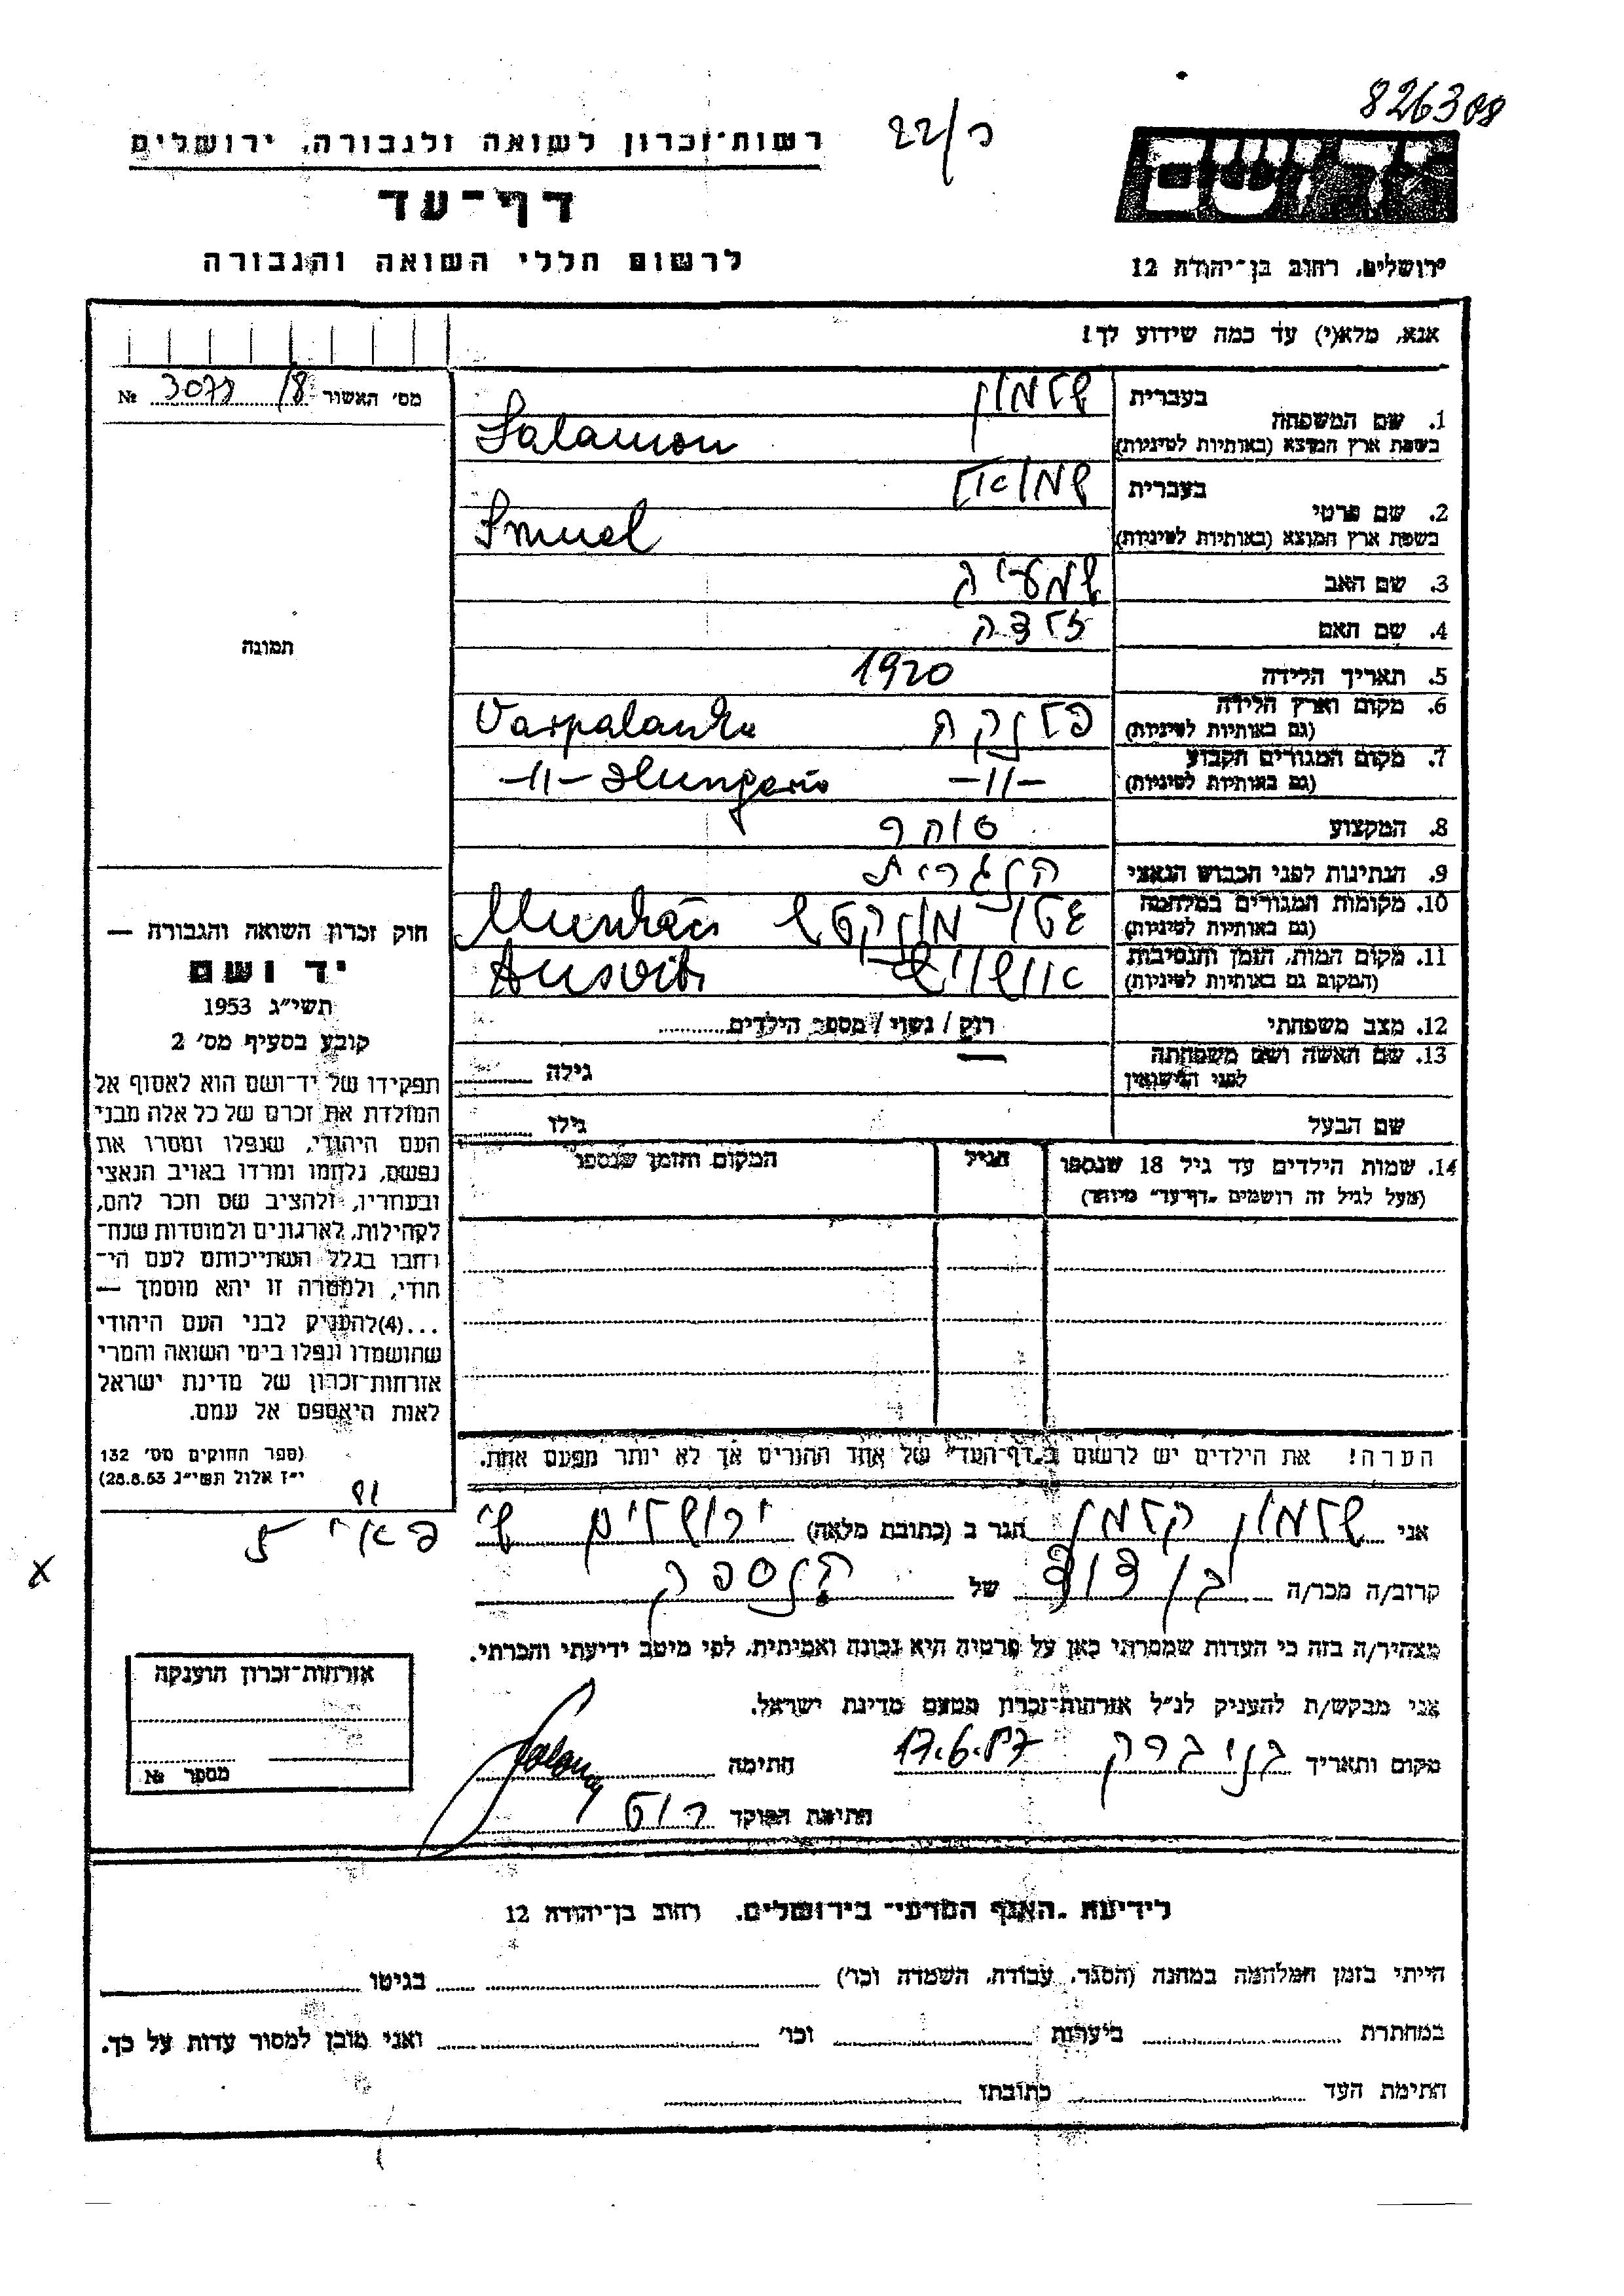 826308
ר/22
יד ושם
ירושלים, רחוב בן־יהודה 12
רשות־זכרון לשואה ולגבורה, ירושלים
דף־עד
לרשום חללי השואה והגבורה
אנא, מלא(י) עד כמה שידוע לך!
מס׳ האשור 18/ № 3078
תמונה
חוק זכרון השואה והגבורה —
יד ושם
תשי״ג 1953
קובע בסעיף מס׳ 2
תפקידו של יד־ושם הוא לאסוף אל
המולדת את זכרם של כל אלה מבני
העם היהודי, שנפלו ומסרו את
נפשם, נלחמו ומרדו באויב הנאצי
ובעוזריו, ולהציב שם וזכר להם,
לקהילות, לארגונים ולמוסדות שנח־
רבו בגלל השתייכותם לעם הי־
הודי, ולמטרה זו יהא מוסמך —
...(4)להעניק לבני העם היהודי
שהושמדו ונפלו בימי השואה והמרי
אזרחות־זכרון של מדינת ישראל
לאות היאספם אל עמם.
(ספר החוקים מס׳ 132
י״ז אלול תשי״ג 28.8.53)
1. שם המשפחה בעברית שלמון
בשפת ארץ המוצא (באותיות לטיניות) Salamon
2. שם פרטי בעברית שמואל
בשפת ארץ המוצא (באותיות לטיניות) Smuel
3. שם האב
4. שם האם
5. תאריך הלידה 1920
6. מקום וארץ הלידה פלנקה Varpalanka
(גם באותיות לטיניות)
7. מקום המגורים הקבוע -11- -11- Hungeria
(גם באותיות לטיניות)
8. המקצוע סוחר
9. הנתינות לפני הכבוש הנאצי הונגרית
10. מקומות המגורים במלחמה גטו מונקטש Munkács
(גם באותיות לטיניות)
11. מקום המות, הזמן והנסיבות אוושויץ Ausvitz
(המקום גם באותיות לטיניות)
12. מצב משפחתי רווק / נשוי / מספר הילדים
13. שם האשה ושם משפחתה גילה
לפני הנישואין
שם הבעל גילו
14. שמות הילדים עד גיל 18 שנספו הגיל המקום והזמן שנספו
(מעל לגיל זה רושמים „דף־עד״ מיוחד)
הערה! את הילדים יש לרשום ב„דף־העד״ של אחד ההורים אך לא יותר מפעם אחת.
אני שלמון קלמן הגר ב (כתובת מלאה) ירושלים
קרוב/ה מכר/ה בן דוד של הנספה
מצהיר/ה בזה כי העדות שמסרתי כאן על פרטיה היא נכונה ואמיתית, לפי מיטב ידיעתי והכרתי.
אני מבקש/ת להעניק לנ״ל אזרחות־זכרון מטעם מדינת ישראל.
מקום ותאריך בני ברק 17.6.57 חתימה Salamon
חתימת הפוקד
אזרחות־זכרון הוענקה
מספר №
לידיעת „האגף המדעי״ בירושלים, רחוב בן־יהודה 12
הייתי בזמן המלחמה במחנה (הסגר, עבודה, השמדה וכו׳) בגיטו
במחתרת ביערות וכו׳ ואני מוכן למסור עדות על כך.
חתימת העד כתובתו